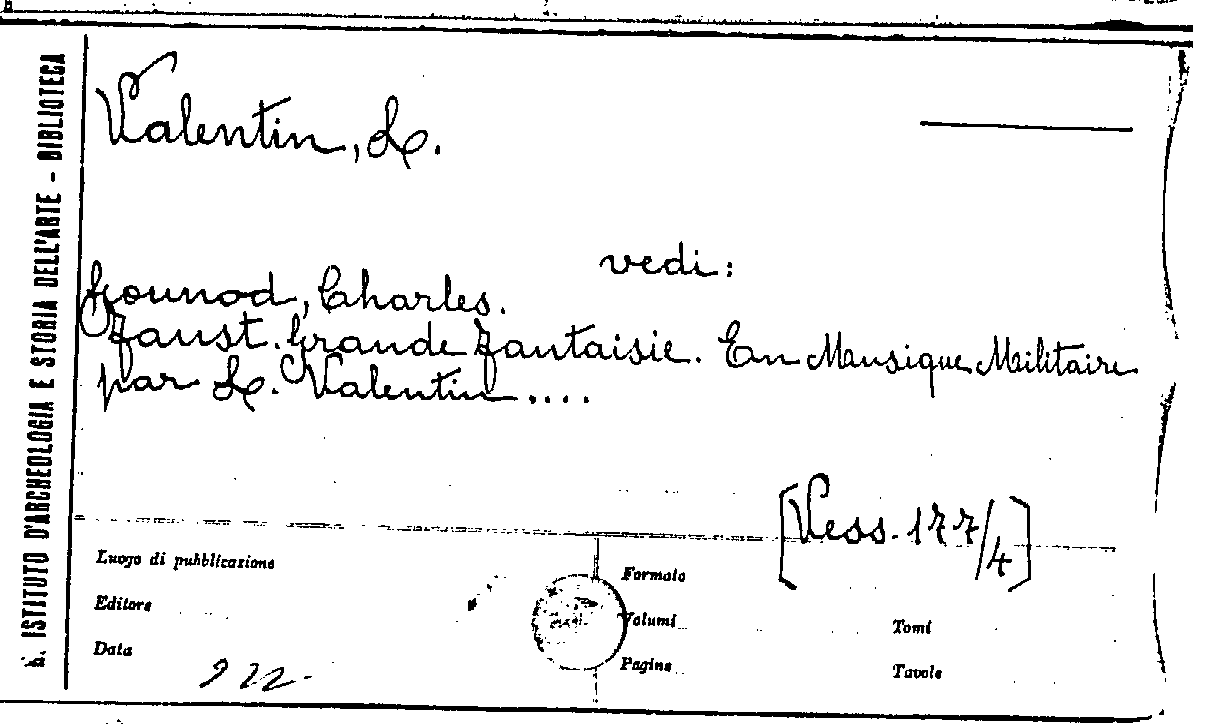 R. ISTITUTO D'ARCHEOLOGIA E STORIA DELL'ARTE - BIBLIOTECA
Valentin, L.
vedi:
Gounod, Charles.
Faust. Grande Fantaisie. En Musique Militaire
par L. Valentin....
[Vess. 177/4]
Luogo di pubblicazione
Formato
Editore
Volumi
Tomi
Data
Pagine
Tavole
922.